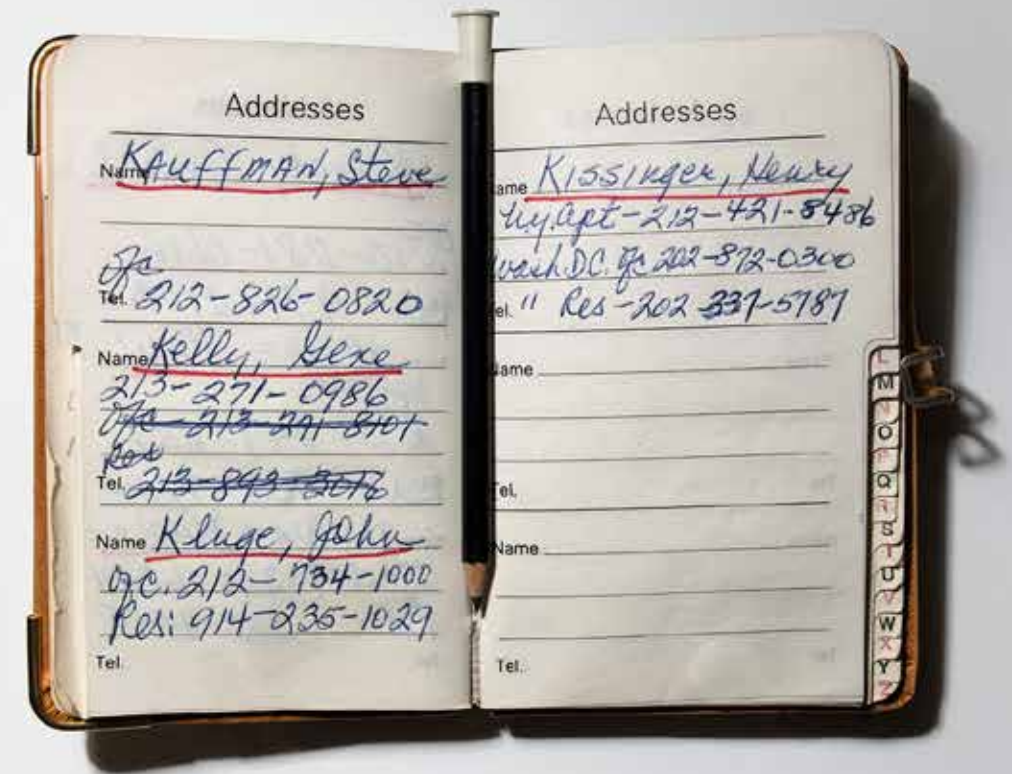 Addresses
Name KAuffmAN, Steve
Ofc
Tel. 212-826-0820
Name Kelly, Gene
213-271-0986
Ofc-213-271-8101
Res
Tel. 213-893-3076
Name Kluge, John
Ofc. 212-734-1000
Res: 914-235-1029
Tel.
Addresses
ame Kissinger, Henry
Ny. Apt-212-421-8486
Wash D.C. Ofc 202-872-0300
el. " Res-202 337-5787
ame
Tel.
Name
Tel.
L
M
N
O
P
Q
R
S
T
U
V
W
X
Y
Z